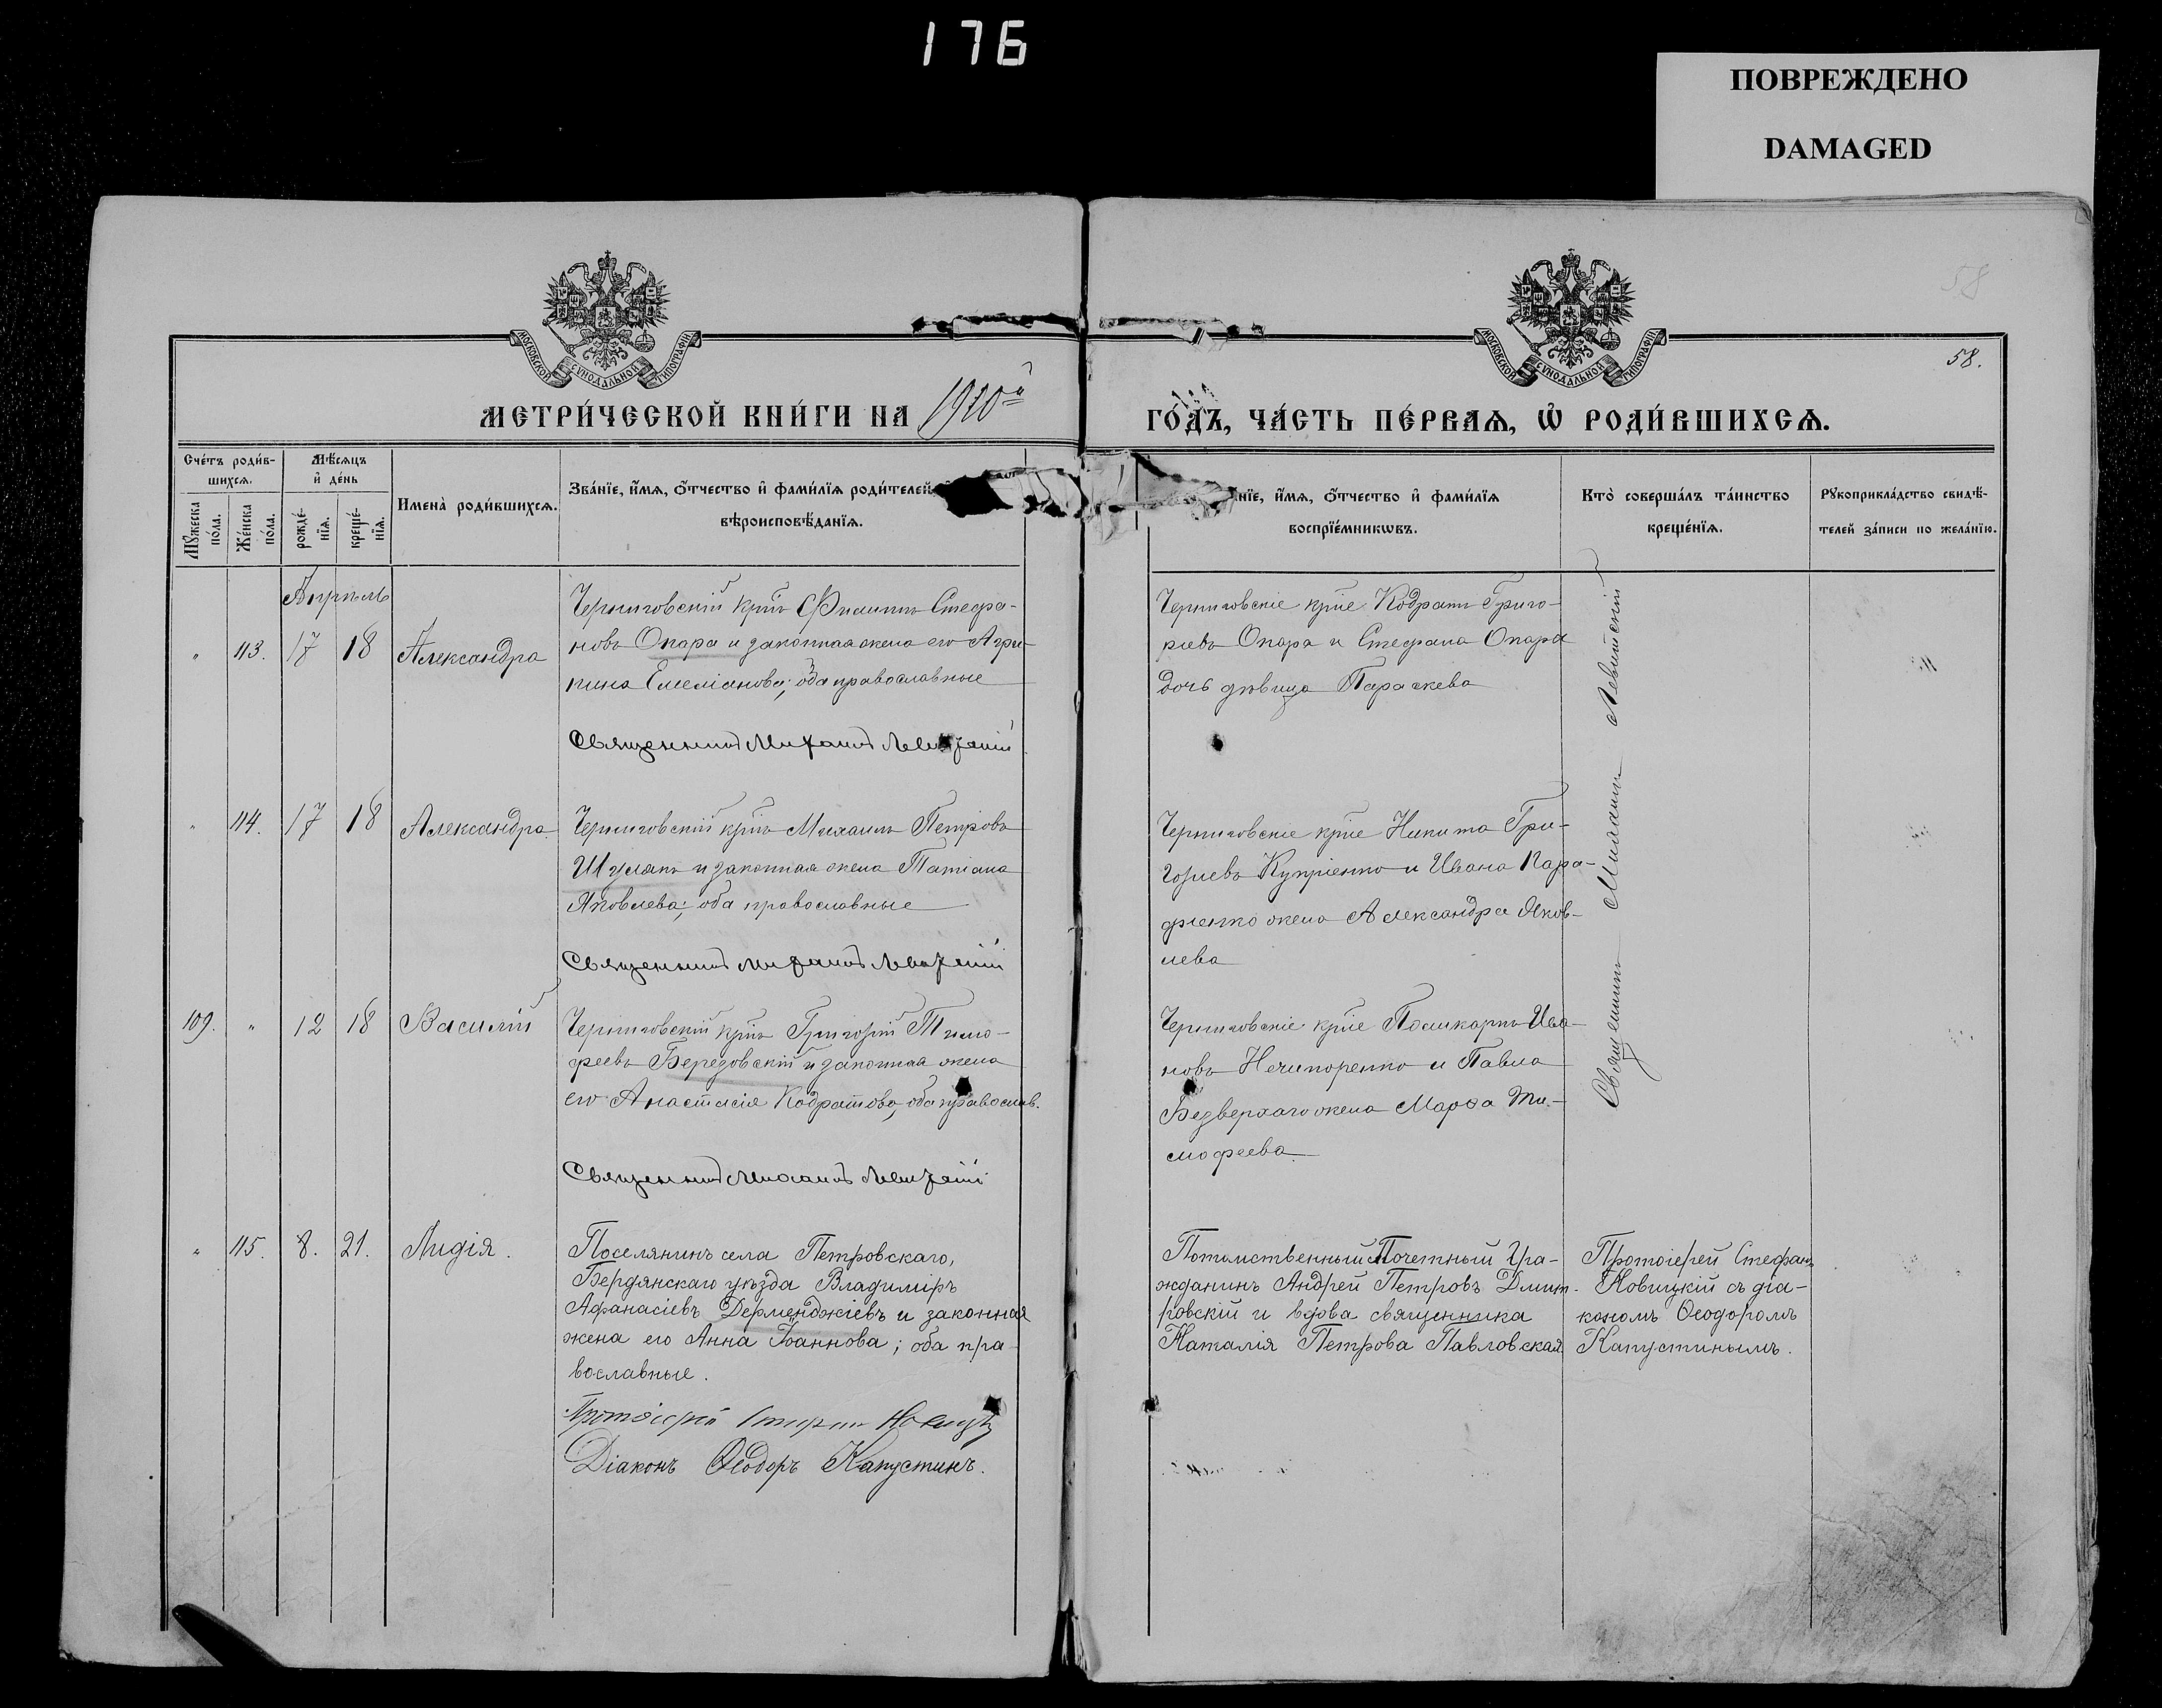 176
ПОВРЕЖДЕНО
DAMAGED
МОСКОВСКОЙ СѴНОДАЛЬНОЙ ТИПОГРАФІИ
МОСКОВСКОЙ СѴНОДАЛЬНОЙ ТИПОГРАФІИ
58
58.
МЕТРИ́ЧЕСКОЙ КНИ́ГИ НА 1910й
ГО́ДЪ, ЧА́СТЬ ПЕ́РВАѦ, Ѡ҆ РОДИ́ВШИХСѦ.
Сче́тъ роди́в-
шихсѧ.
Мꙋ́жеска по́ла.
Же́нска по́ла.
Мѣ́сѧцъ
и҆ де́нь
рожде́-нїѧ.
креще́-нїѧ.
Имена̀ роди́вшихсѧ.
Зва́нїе, и҆́мѧ, ѻ҆́тчество и҆ фами́лїѧ роди́телей,
вѣроисповѣ́данїѧ.
нїе, и҆́мѧ, ѻ҆́тчество и҆ фами́лїѧ
воспрїе́мникѡвъ.
Кто̀ соверша́лъ та́инство
креще́нїѧ.
Рꙋкоприкла́дство свидѣ́-
телей за́писи по жела́нїю.
Апрѣль
" 113. 17 18 Александра
Черниговскій крнъ Филиппъ Стефа-
новъ Опара и законная жена его Агри-
пина Емеліанова; оба православные
Священникъ Михаилъ Левитскій
Черниговскіе крне Кодратъ Григо-
рьевъ Опара и Стефана Опара
дочь девица Параскева
" 114. 17 18 Александра
Черниговскій крнъ Михаилъ Петровъ
Шулякъ и законная жена Татіана
Яковлева; оба православные
Священникъ Михаилъ Левитскій
Черниговскіе крне Никита Гри-
горьевъ Купріенко и Ивана Пара-
фіенко жена Александра Яков-
лева
109. " 12 18 Василій
Черниговскій крнъ Григорій Тимо-
феевъ Березовскій и законная жена
его Анастасія Кодратова, оба православ.
Священникъ Михаилъ Левитскій
Черниговскіе крне Поликарпъ Ива-
новъ Нечипоренко и Павла
Безверхаго жена Марѳа Ти-
мофеева.
Священникъ Михаилъ Левитскій
" 115. 8. 21. Лидія.
Поселянинъ села Петровскаго,
Бердянскаго уѣзда Владиміръ
Афанасіевъ Дерменджіевъ и законная
жена его Анна Іоаннова; оба пра-
вославные.
Протоіерей Стефанъ Новицкій
Діаконъ Ѳеодоръ Капустинъ.
Потомственный Почетный Гра-
жданинъ Андрей Петровъ Дмит-
ровскій и вдова священника
Наталія Петрова Павловская
Протоіерей Стефанъ
Новицкій съ діа-
кономъ Ѳеодоромъ
Капустинымъ.